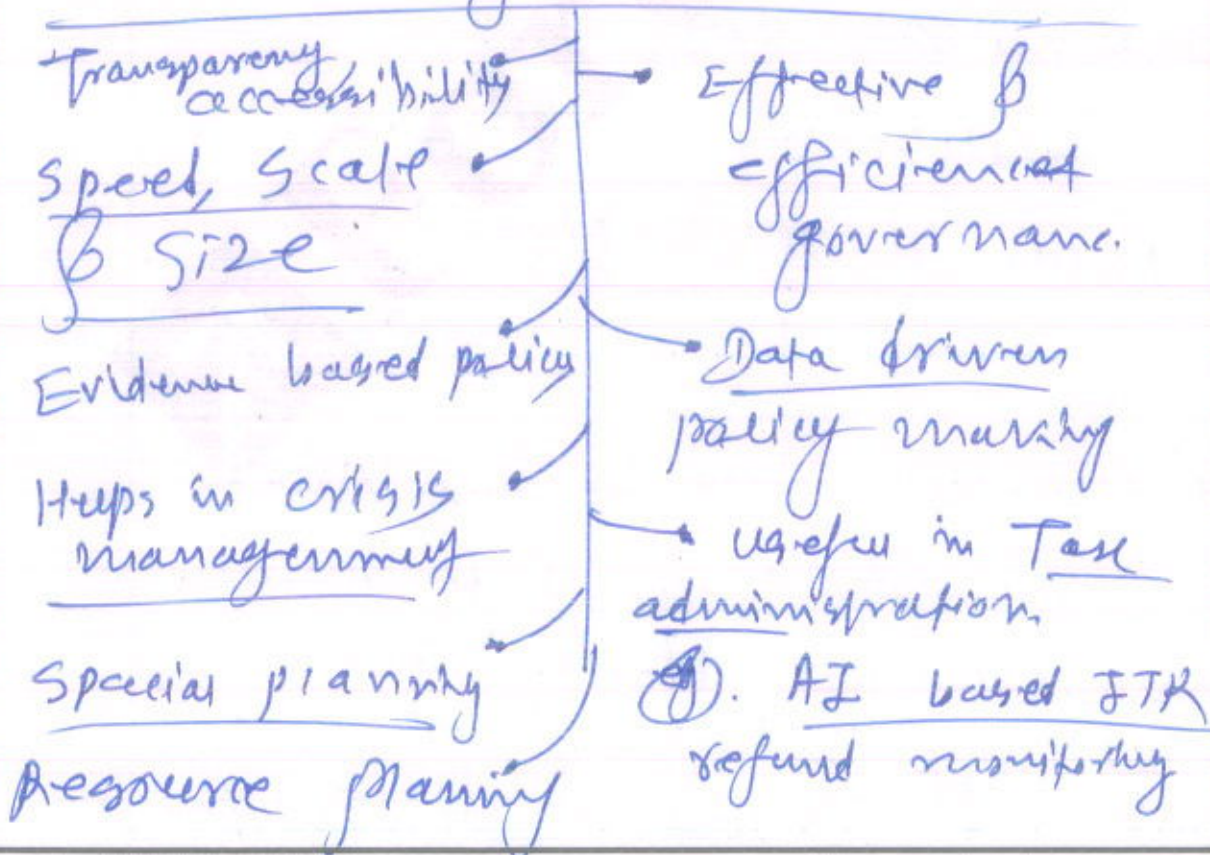 Transparency
accessibility
Speed, Scale
& Size
Evidence based policy
Helps in crisis
management
Spacial planning
Resource planning
Effective &
efficient
governanc.
Data driven
policy making
Useful in Tax
administration.
eg. AI based ITR
refund monitoring